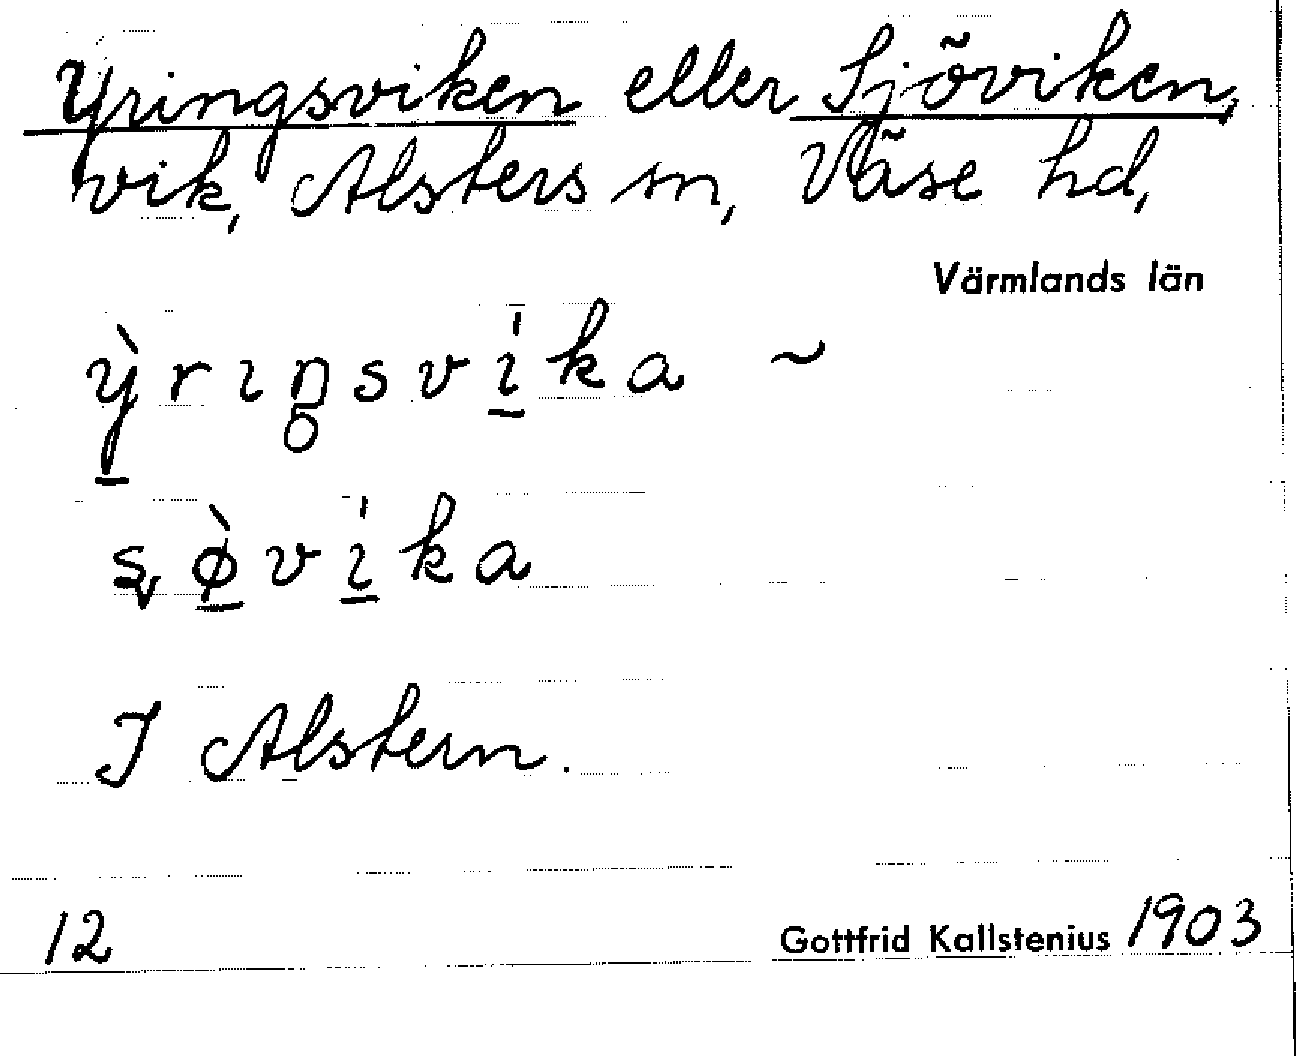 Yringsviken eller Sjöviken,
vik, Alsters sn, Väse hd,
Värmlands län
ỳ̠rıŋsvı̠́ka ~
ʂø̠̀vı̠́ka
I Alstern.
12 Gottfrid Kallstenius 1903